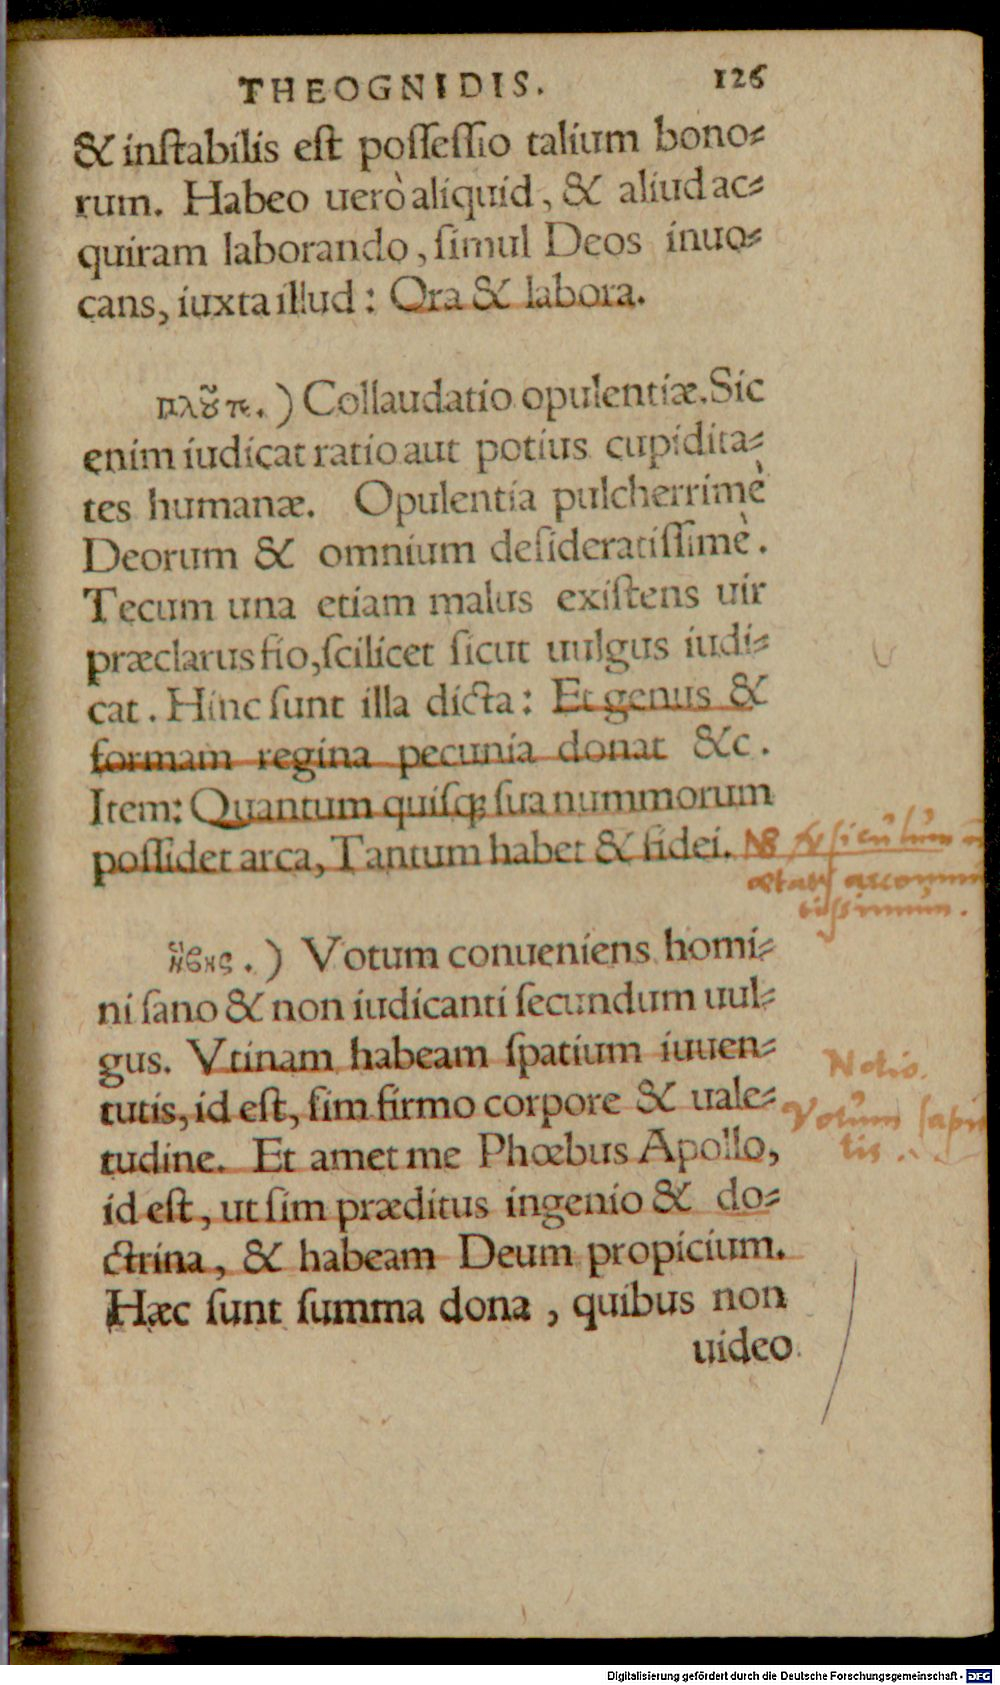 THEOGNIDIS. 126
& inſtabilis eſt poſſeſſio talium bono⸗
rum. Habeo uerò aliquid, & aliud ac⸗
quiram laborando, ſimul Deos inuo⸗
cans, iuxta illud: Ora & labora.
πλȣ͂π.) Collaudatio opulentiæ. Sic
enim iudicat ratio aut potius cupidita⸗
tes humanæ. Opulentia pulcherrimè
Deorum & omnium deſideratiſſimè.
Tecum una etiam malus exiſtens uir
præclarus fio, ſcilicet ſicut uulgus iudi⸗
cat. Hinc ſunt illa dicta: Et genus &
formam regina pecunia donat &c.
Item: Quantum quiſq; ſua nummorum
poſſidet arca, Tantum habet & fidei. NB
ἥβης.) Votum conueniens homi⸗
ni ſano & non iudicanti ſecundum uul⸗
gus. Vtinam habeam ſpatium iuuen⸗
tutis, id eſt, ſim firmo corpore & uale⸗
tudine. Et amet me Phœbus Apollo,
id eſt, ut ſim præditus ingenio & do⸗
ctrina, & habeam Deum propicium.
Hæc ſunt ſumma dona, quibus non
uideo
Votum
Digitalisierung gefördert durch die Deutsche Forschungsgemeinschaft - DFG